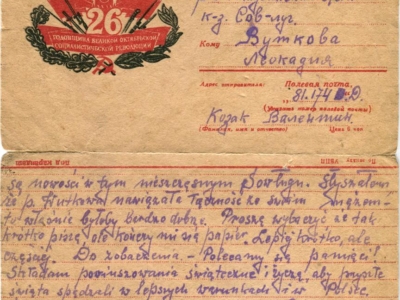 26
ГОДОВЩИНА ВЕЛИКОЙ ОКТЯБРЬСКОЙ
СОЦИАЛИСТИЧЕСКОЙ РЕВОЛЮЦИИ
к-з. Сов-луг.
Кому Вуткова
Леокадия
Адрес отправителя: Полевая почта
81.174
Козак Валентин
(Фамилия, имя и отчество) Цена 5 коп
są nowości w tym nieszczęsnym Sowługu. Słyszałam
że p. Wutkowa nawiązała łączność ze swoim mężem
to właśnie byłoby bardzo dobrze. Proszę wybaczyć że tak
krótko piszę, ale kończy mi się papier. Lepiej krótko, ale
częściej. Do zobaczenia. - Polecamy się pamięci!
Składam powinszowania świąteczne i życzę, aby przyszłe
święta spędzili w lepszych warunkach i w Polsce.